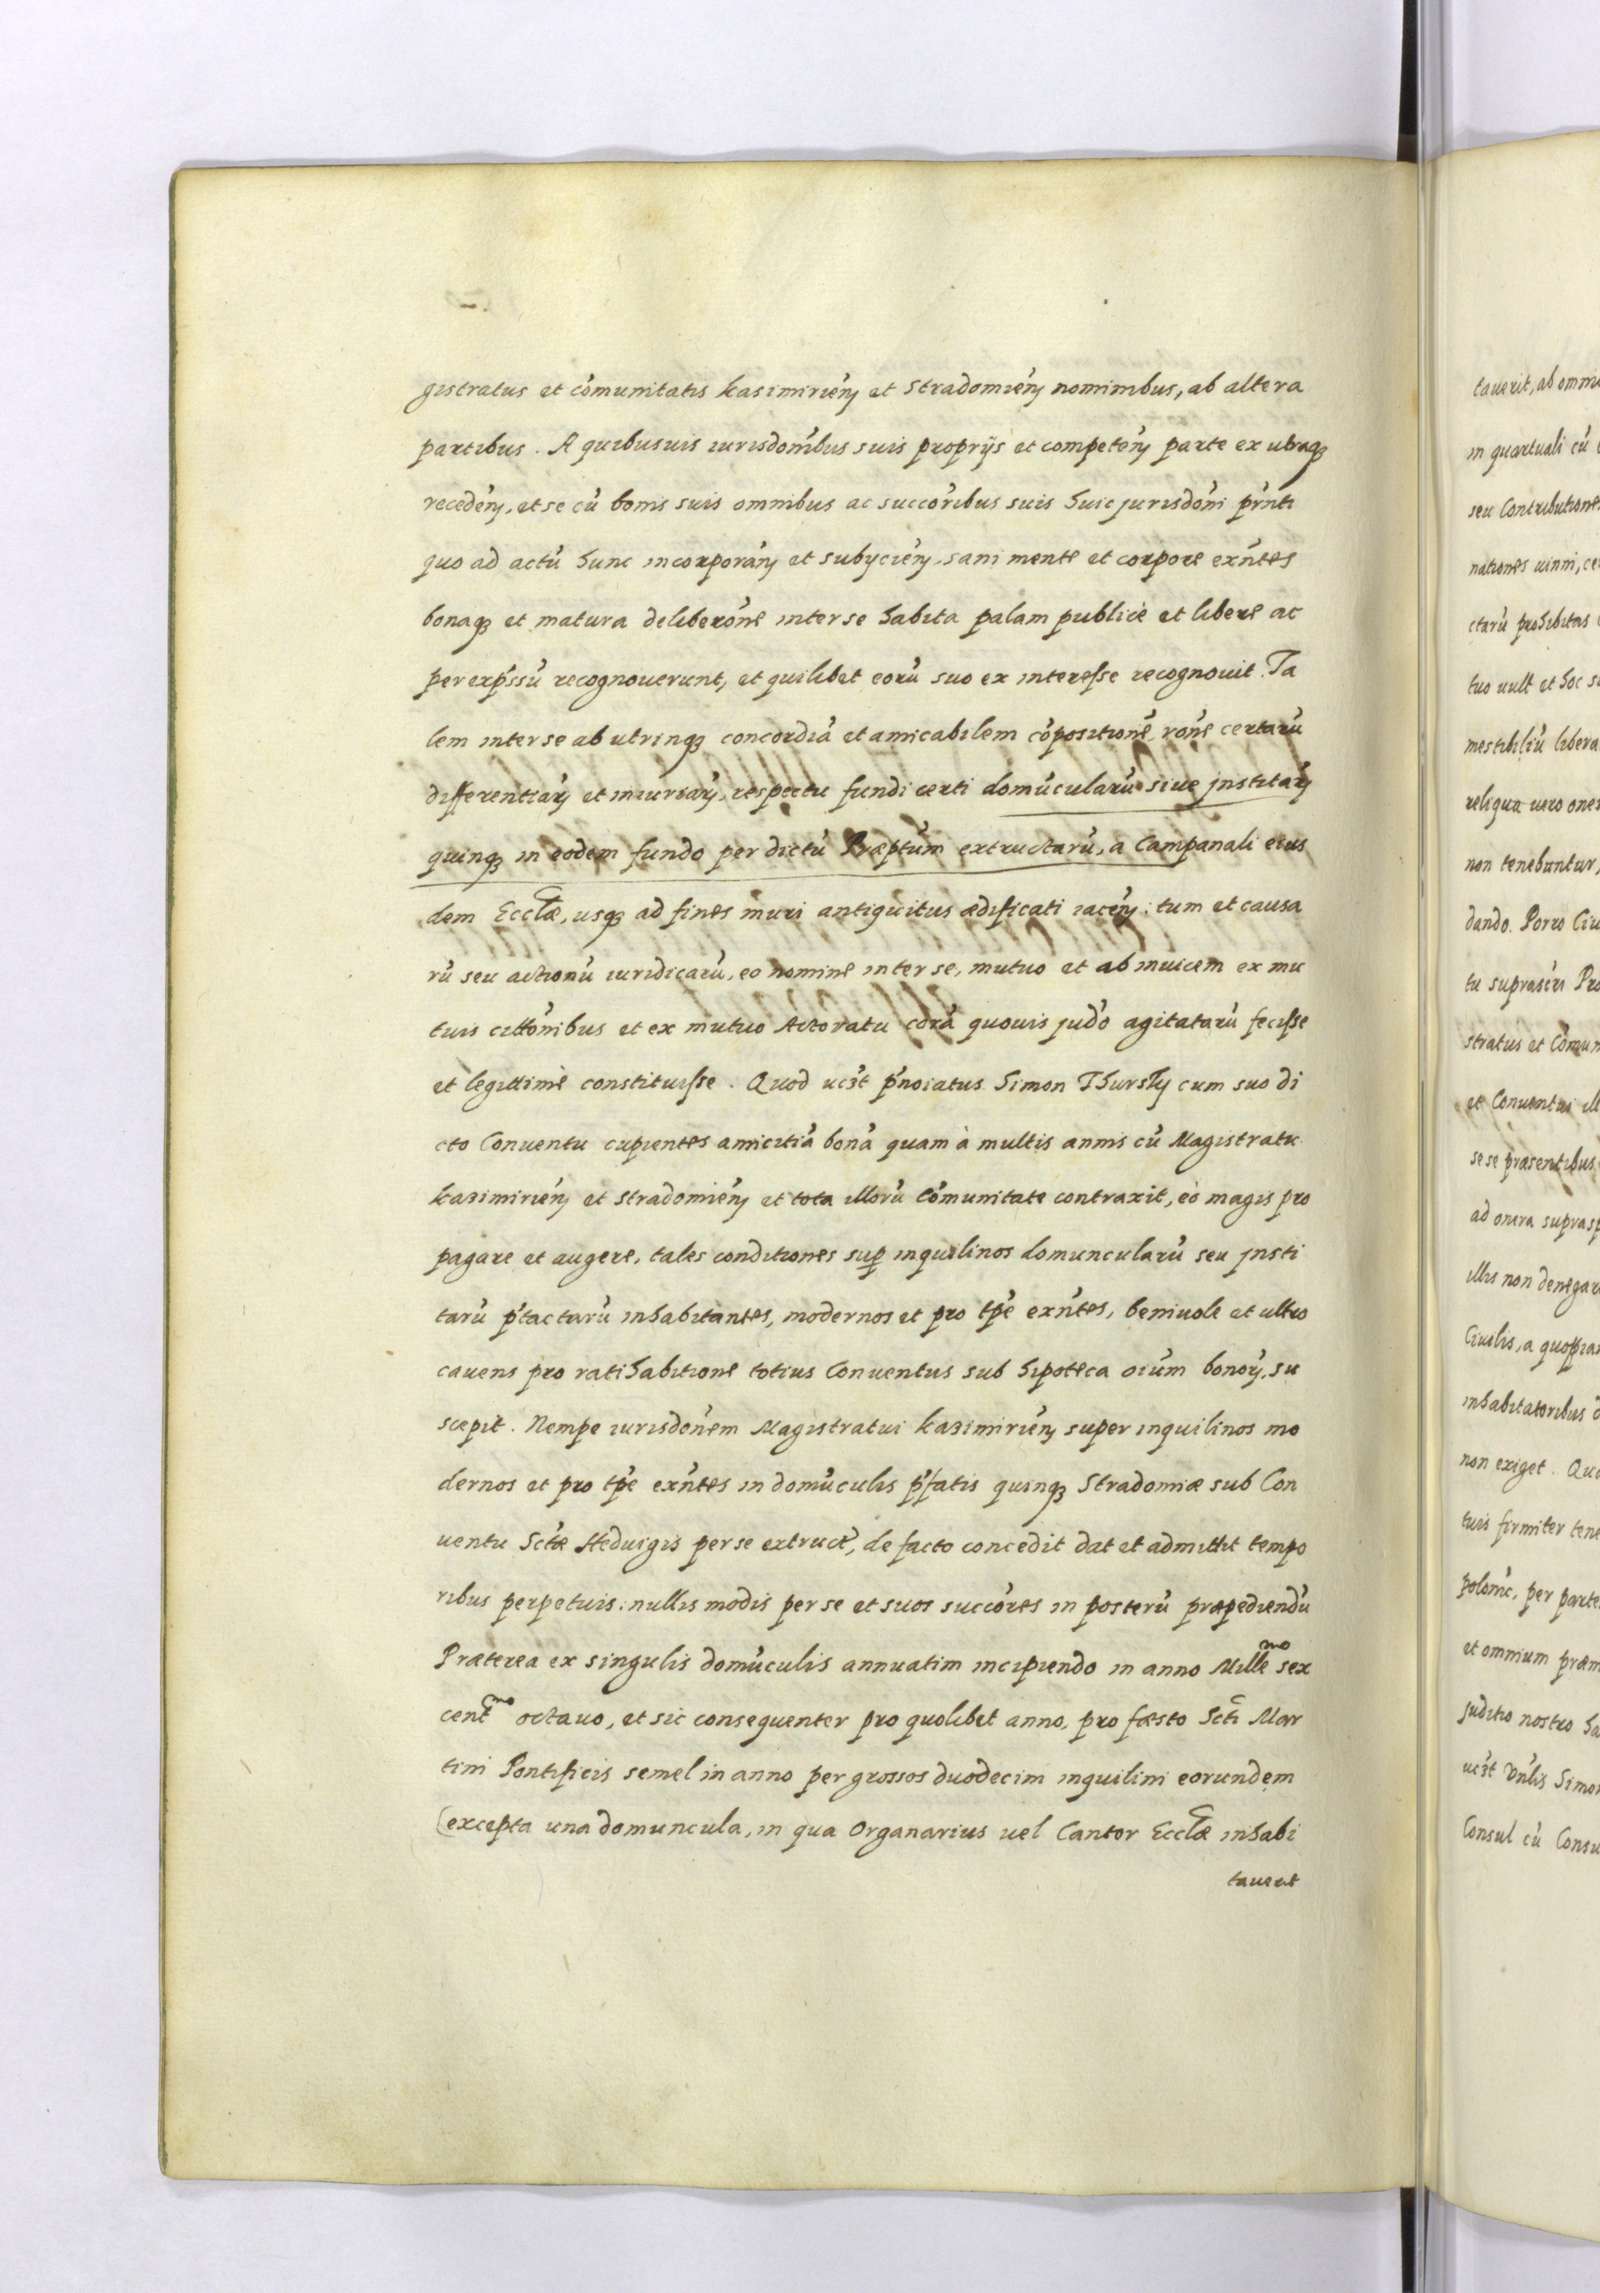 gistratus et cõmunitatis Kasimirien̄ et Stradomien̄ nominibus, ab altera
partibus. A quibusuis iurisdom̄bus suis proprijs et competen̄ parte ex utraq₃
receden̄, et se cũ bonis suis omnibus ac succõribus suis huic jurisdom̄ pr̄nti
quo ad actũ hunc incorporan̄ et subycien̄, sani mente et corpore exn̄tes
bonaq₃ et matura deliberõne inter se habita palam publicè et libere ac
per exp̄ssũ recognouerunt, et quilibet eorũ suo ex interesse recognouit. Ta
lem inter se ab utrinq₃ concordiã et amicabilem cõpositionẽ rõne certarũ
differentiarũ et iniuriarũ, respectu fundi certi domũcularũ siue jnstitarũ
quinq₃ in eodem fundo per dictũ Præptũm extructarũ, a Campanali eius
dem Eccl̃æ, usq₃ ad fines muri antiquitus ædificati iacen̄: tum et causa
rũ seu actionũ iuridicarũ, eo nomine inter se, mutuo et ab inuicem ex mu
tuis cittõnibus et ex mutuo Actoratu corã quouis judõ agitatarũ fecisse
et legittimè constituisse. Quod uc₃t p̄noiatus Simon Thursky cum suo di
cto Conuentu cupientes amicitiã bonã quam à multis annis cũ Magistratu
Kazimirien̄ et Stradomien̄ et tota illorũ Cõmunitate contraxit, eò magis pro
pagare et augere, tales conditiones sup̱ inquilinos domuncularũ seu jnsti
tarũ p̄tactarũ inhabitantes, modernos et pro tp̄e exn̄tes, beniuole et ultro
cauens pro ratihabitione totius Conuentus sub hipoteca oiũm bonorũ, su
scepit. Nempe iurisdõnem Magistratui Kazimirien̄ super inquilinos mo
dernos et pro tp̄e exn̄tes in domũculis p̄fatis quinq₃ Stradomiæ sub Con
uentu Sctæ Heduigis per se extruct̃, de facto concedit dat et admittit tempo
ribus perpetuis: nullis modis per se et suos succõres in posterũ præpediendũ
Præterea ex singulis domũculis annuatim incipiendo in anno Mille͞mo sex
cent͞mo octauo, et sic consequenter pro quolibet anno, pro fæsto Sctĩ Mar
tini Pontificis semel in anno per grossos duodecim inquilini eorundem
(excepta una domuncula, in qua Organarius uel Cantor Eccl̃æ inhabi
tauerit

tauerit, ab omni
in quartuali cũ
seu Contributione
nationes uini, ce
ctarũ prohibitas
tuo uult et hoc
mestibiliũ libera
reliqua uero one
non tenebuntur,
dando. Porro Ciu
tu suprascri Pro
stratus et Cõmun
et Conuentui
sese præsentibus
ad onera suprasp
illis non denegar
Ciuilis, a quopia
inhabitatoribus
non exiget. Quo
tuis firmiter tene
polonic̃, per parte
et omnium præm
Juditio nostro ha
uc₃t Vnlis Simo
Consul cũ Consu